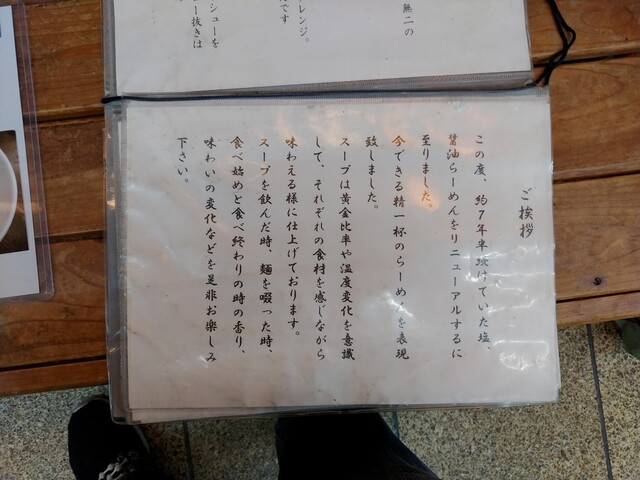 無二の
レンジ。
です
シューを
ー抜きは
ご挨拶
この度、約７年半続けていた塩、
醤油らーめんをリニューアルするに
至りました。
今できる精一杯のらーめんを表現
致しました。
スープは黄金比率や温度変化を意識
して、それぞれの食材を感じながら
味わえる様に仕上げております。
スープを飲んだ時、麺を啜った時、
食べ始めと食べ終わりの時の香り、
味わいの変化などを是非お楽しみ
下さい。